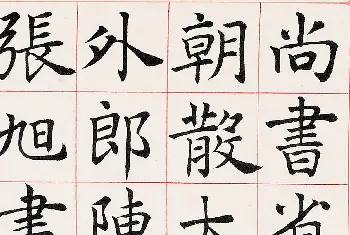 尚書省
朝散大
外郎陳
張旭書